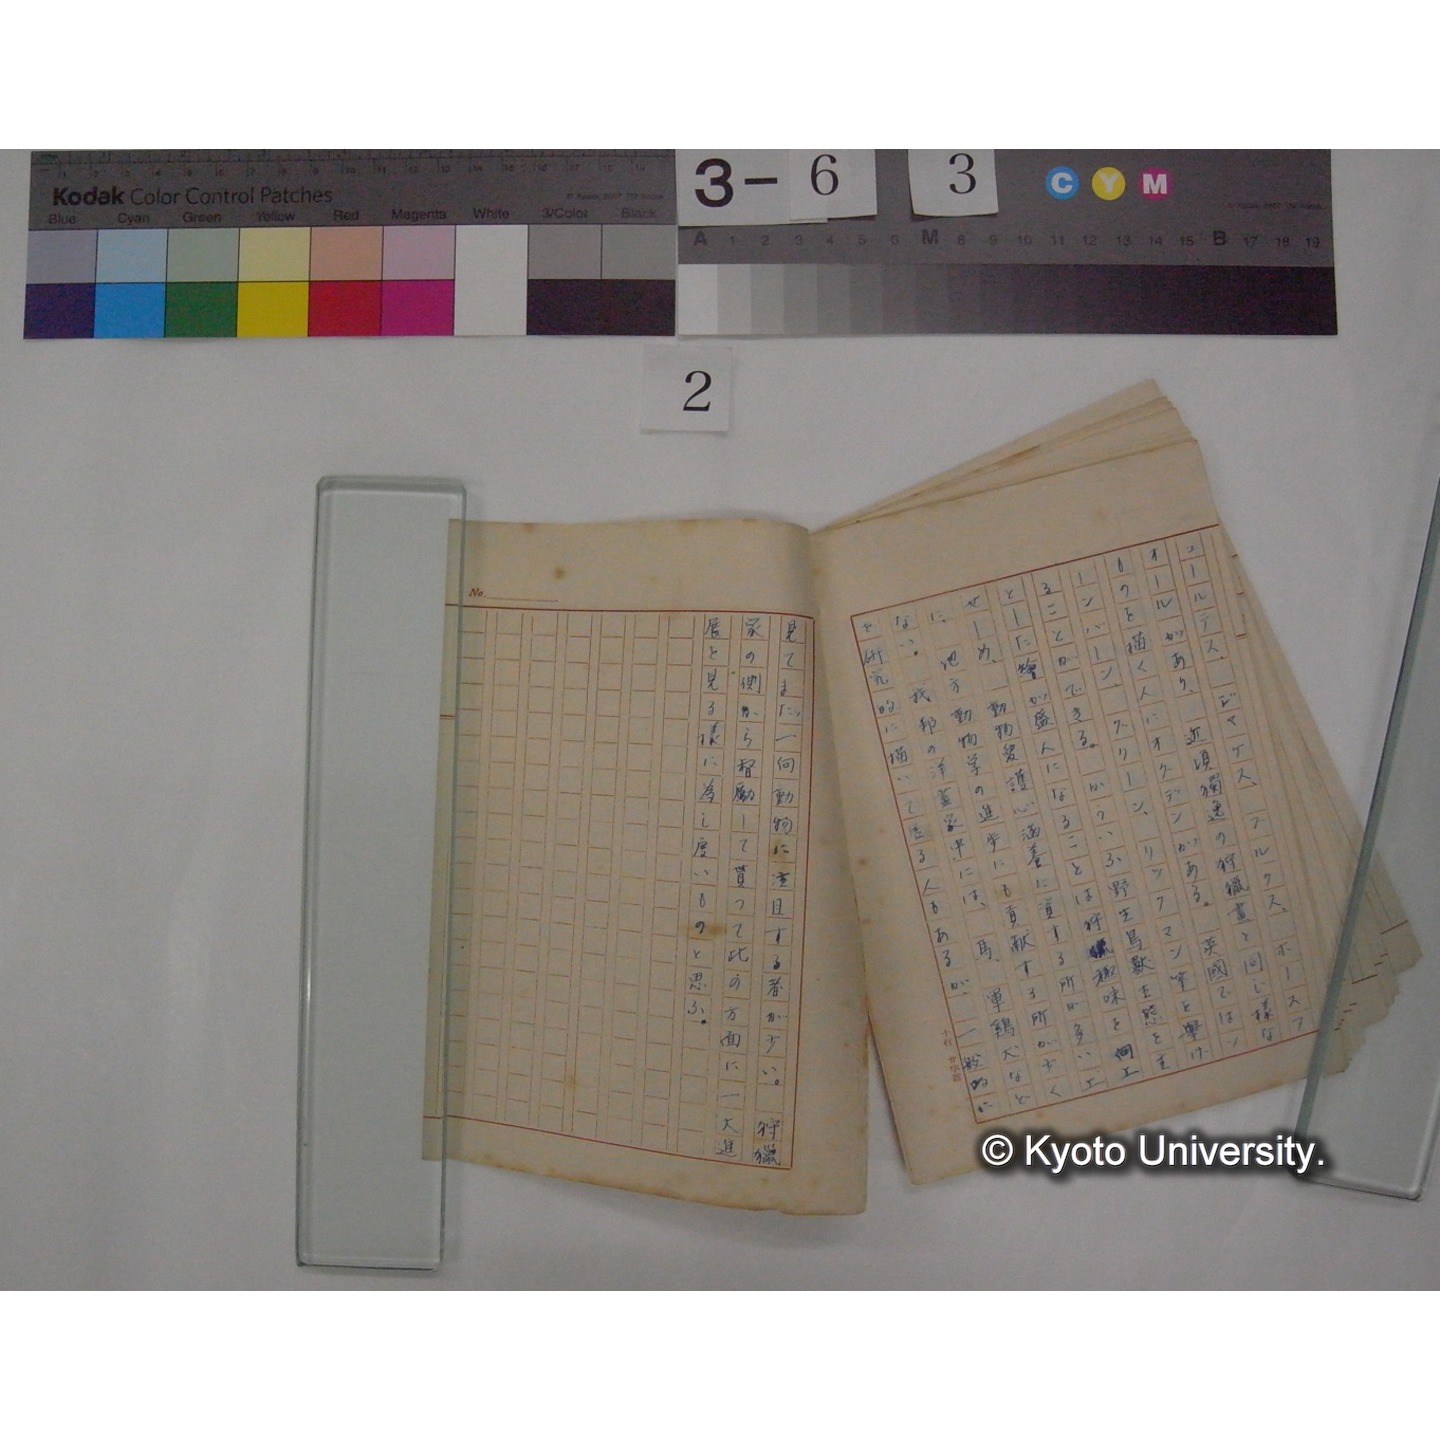 Kodak Color Control Patches
Blue Cyan Green Yellow Red Magenta White 3/Color Black
3- 6 3
C Y M
A 1 2 3 4 5 6 M 8 9 10 11 12 13 14 15 B 17 18 19
2
エールデス、ジャケス、フルクス、ホースフ
オールがあり、近頃獨逸の狩獵畫と同じ様な
ものを描く人にオグデンがある。英國ではン
ーンバーン、グリーン、リックマン等と擧げ
ることができる。かういふ野生鳥獸生態を主
とした繪が盛んになることは狩獵趣味を向上
せしめ、動物愛護心涵養に資する所が多い
に、他方動物学の進歩にも貢献する所が少く
ない。我邦の洋畫家中には、馬、軍鶏犬など
を研究的に描いて居る人もあるが、一般的に
No.
見てまだ一向動物に注目する者が少い。狩獵
家の側から督勵して貰つて此の方面に一大進
展を見る様に為し度いものと思ふ。
© Kyoto University.